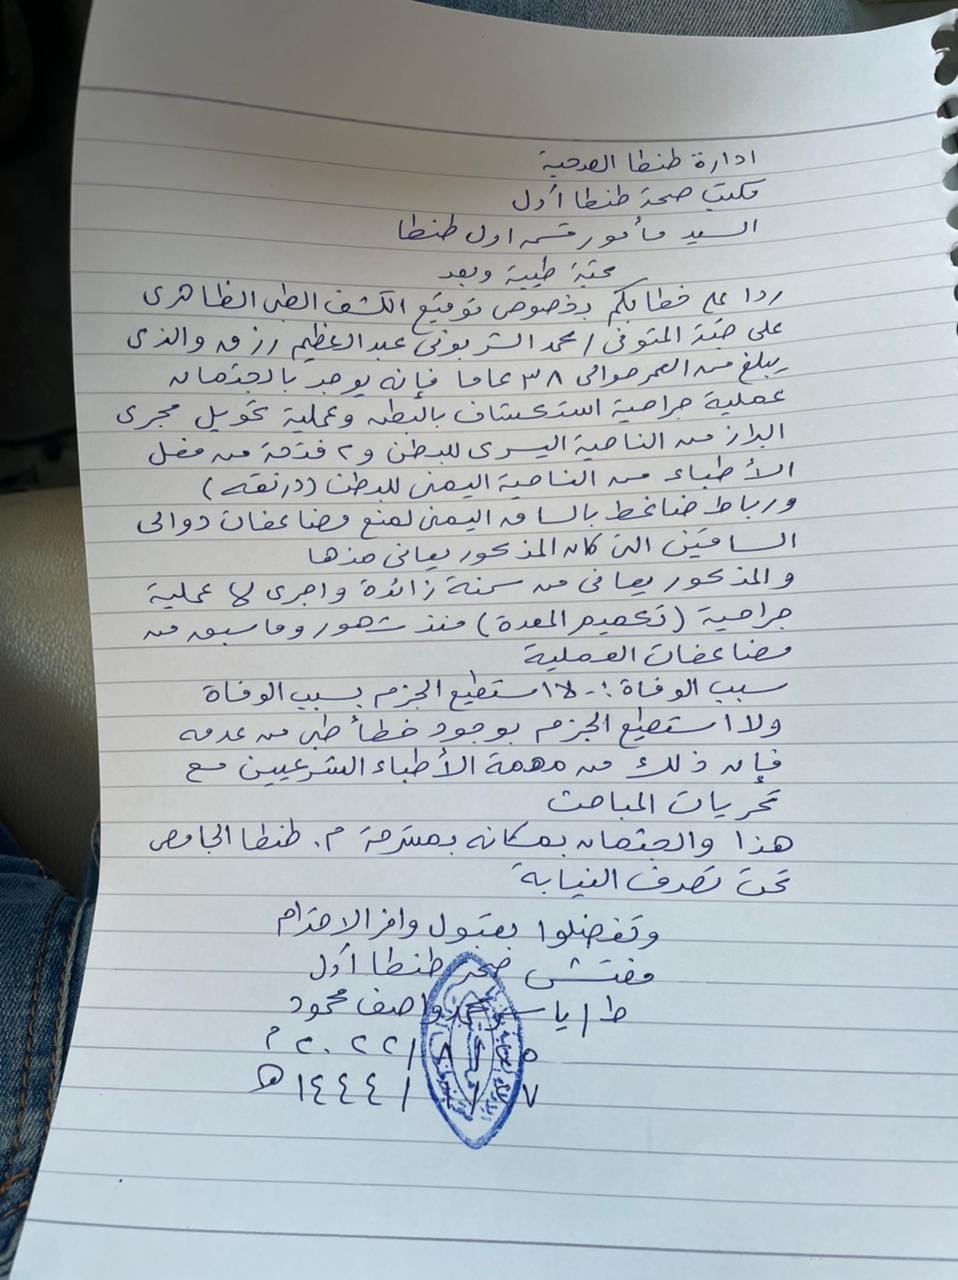 ادارة طنطا الصحية
مكتب صحة طنطا أول
السيد مأمور قسم اول طنطا
تحية طيبة وبعد
ردا على خطابكم بخصوص توقيع الكشف الطبى الظاهرى
على جثة المتوفى / محمد الشربونى عبد العظيم رزق والذى
يبلغ من العمر حوالى ٣٨ عاما فإنه يوجد بالجثمان
عملية جراحية استكشاف بالبطن وعملية تحويل مجرى
البراز من الناحية اليسرى للبطن و ٢ فتحة من فعل
الأطباء من الناحية اليمنى للبطن (درنقة)
ورباط ضاغط بالساق اليمنى لمنع مضاعفات دوالى
الساقين التى كان المذكور يعانى منها
والمذكور يعانى من سمنة زائدة واجرى له عملية
جراحية (تكميم المعدة) منذ شهور وما سبق من
مضاعفات العملية
سبب الوفاة :- لا استطيع الجزم بسبب الوفاة
ولا استطيع الجزم بوجود خطأ طبى من عدمه
فإن ذلك من مهمة الأطباء الشرعيين مع
تحريات المباحث
هذا والجثمان بمكانه بمشرحة م. طنطا الجامعى
تحت تصرف النيابة
وتفضلوا بقبول وافر الاحترام
مفتش صحة طنطا أول
ط / ياسر محمد واصف محمود
٥ / ٨ / ٢٠٢٢ م
٧ / ١ / ١٤٤٤ هـ